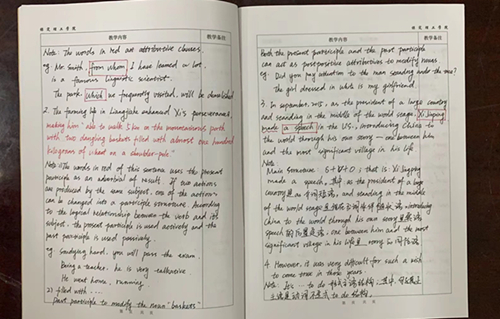 教学内容
教学备注
Note: The words in red are attributive clauses.
eg. Mr. Smith, from whom I have learned a lot,
is a famous linguistic scientist.
The park, which we frequently visited, will be demolished
2. The farming life in Liangjiahe enhanced Xi's perseverance,
making him able to walk 5 km on the mountainous path
with two dangling baskets filled with almost one hundred
kilograms of wheat on a shoulder-pole."
Note: ① The words in red of this sentence uses the present
participle as an adverbial of result. If two actions
are produced by the same subject, one of the actions
can be changed into a participle structure. According
to the logical relationship between the verb and its
subject, the present participle is used actively and the
past participle is used passively.
eg. Studying hard, you will pass the exam.
Being a teacher, he is very talkative
He went home, running.
2) filled with ....
Past participle to modify the noun "baskets"
教学内容
教学备注
Both the present participle and the past participle
can act as postpositive attributives to modify nouns
eg. Did you pay attention to the man standing under the tree?
The girl dressed in white is my girlfriend.
3. In september, 2015, as the president of a large country
and standing in the middle of the world stage, Xi Jinping
made a speech in the U.S., introducing China to
the world through his own story — one between him
and the most significant village in his life
Note
Main structure S+V+O, that is: Xi Jinping
made a speech,
as the president of a large
country
and standing in the middle
of the world stage
introducing
China to the world through his own story
speech
one between him and the most
significant village in his life
4. However, it was very difficult for such a wish
to come true in those years.
Note: for ... to do
to do